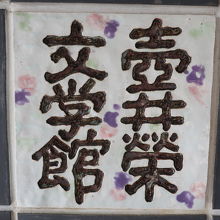 壺井榮
文学館